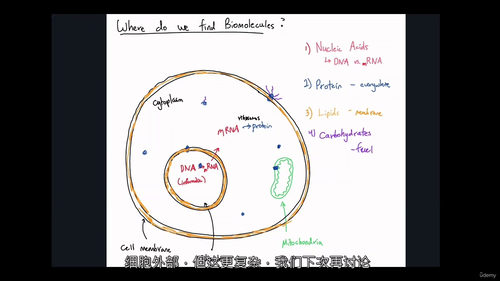 Where do we find Biomolecules?
1) Nucleic Acids
↳ DNA vs. mRNA
2) Protein - everywhere
3) Lipids - membrane
4) Carbohydrates
- fuel
cytoplasm
ribosomes
mRNA → protein
DNA → mRNA
Mitochondria
Cell membrane
細胞外部，但這更复杂，我们下次再讨论
Udemy